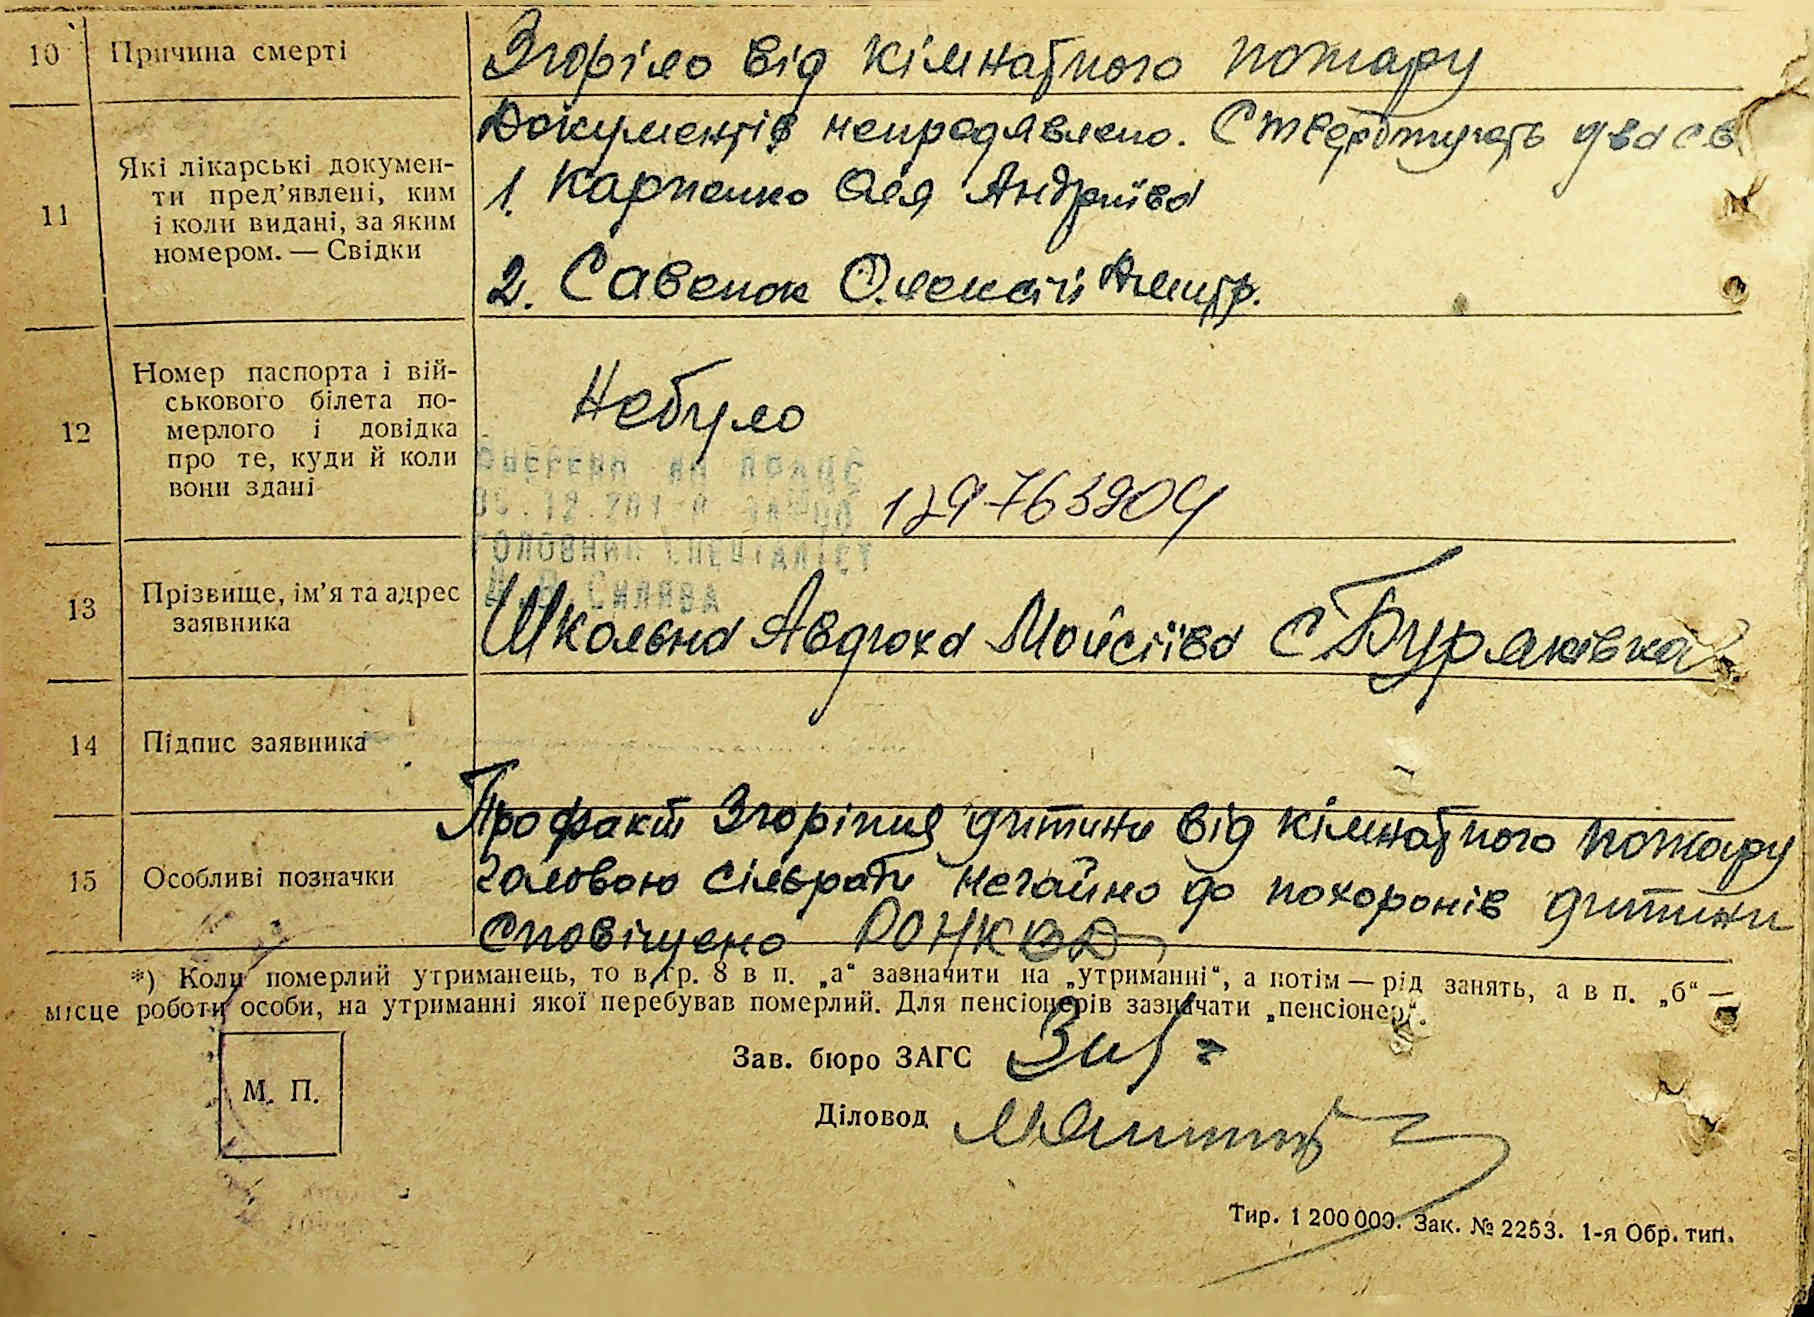 10 Причина смерті Згоріло від кімнатного пожару
11 Які лікарські докумен-
ти пред’явлені, ким
і коли видані, за яким
номером. — Свідки
Документів непредявлено. Стверджують два св
1. Карпенко Андріївна
2. Савенок Олексій Дмитр.
12 Номер паспорта і вій-
ськового білета по-
мерлого і довідка
про те, куди й коли
вони здані
Небуло
129763904
ГОЛОВНИЙ СПЕЦІАЛІСТ
13 Прізвище, ім’я та адрес
заявника
Школьна Авдюха Мойсіївa С Буряківка
14 Підпис заявника
15 Особливі позначки
Профакт Згоріння дитини від кімнатного пожару
головою сільради негайно до похоронів дитини
Сповіщено РОНКВД
*) Коли померлий утриманець, то в гр. 8 в п. „а“ зазначити на „утриманні“, а потім — рід занять, а в п. „б“ —
місце роботи особи, на утриманні якої перебував померлий. Для пенсіонерів зазначати „пенсіонер“.
Зав. бюро ЗАГС
М. П.
Діловод
Тир. 1 200 000. Зак. № 2253. 1-я Обр. тип.